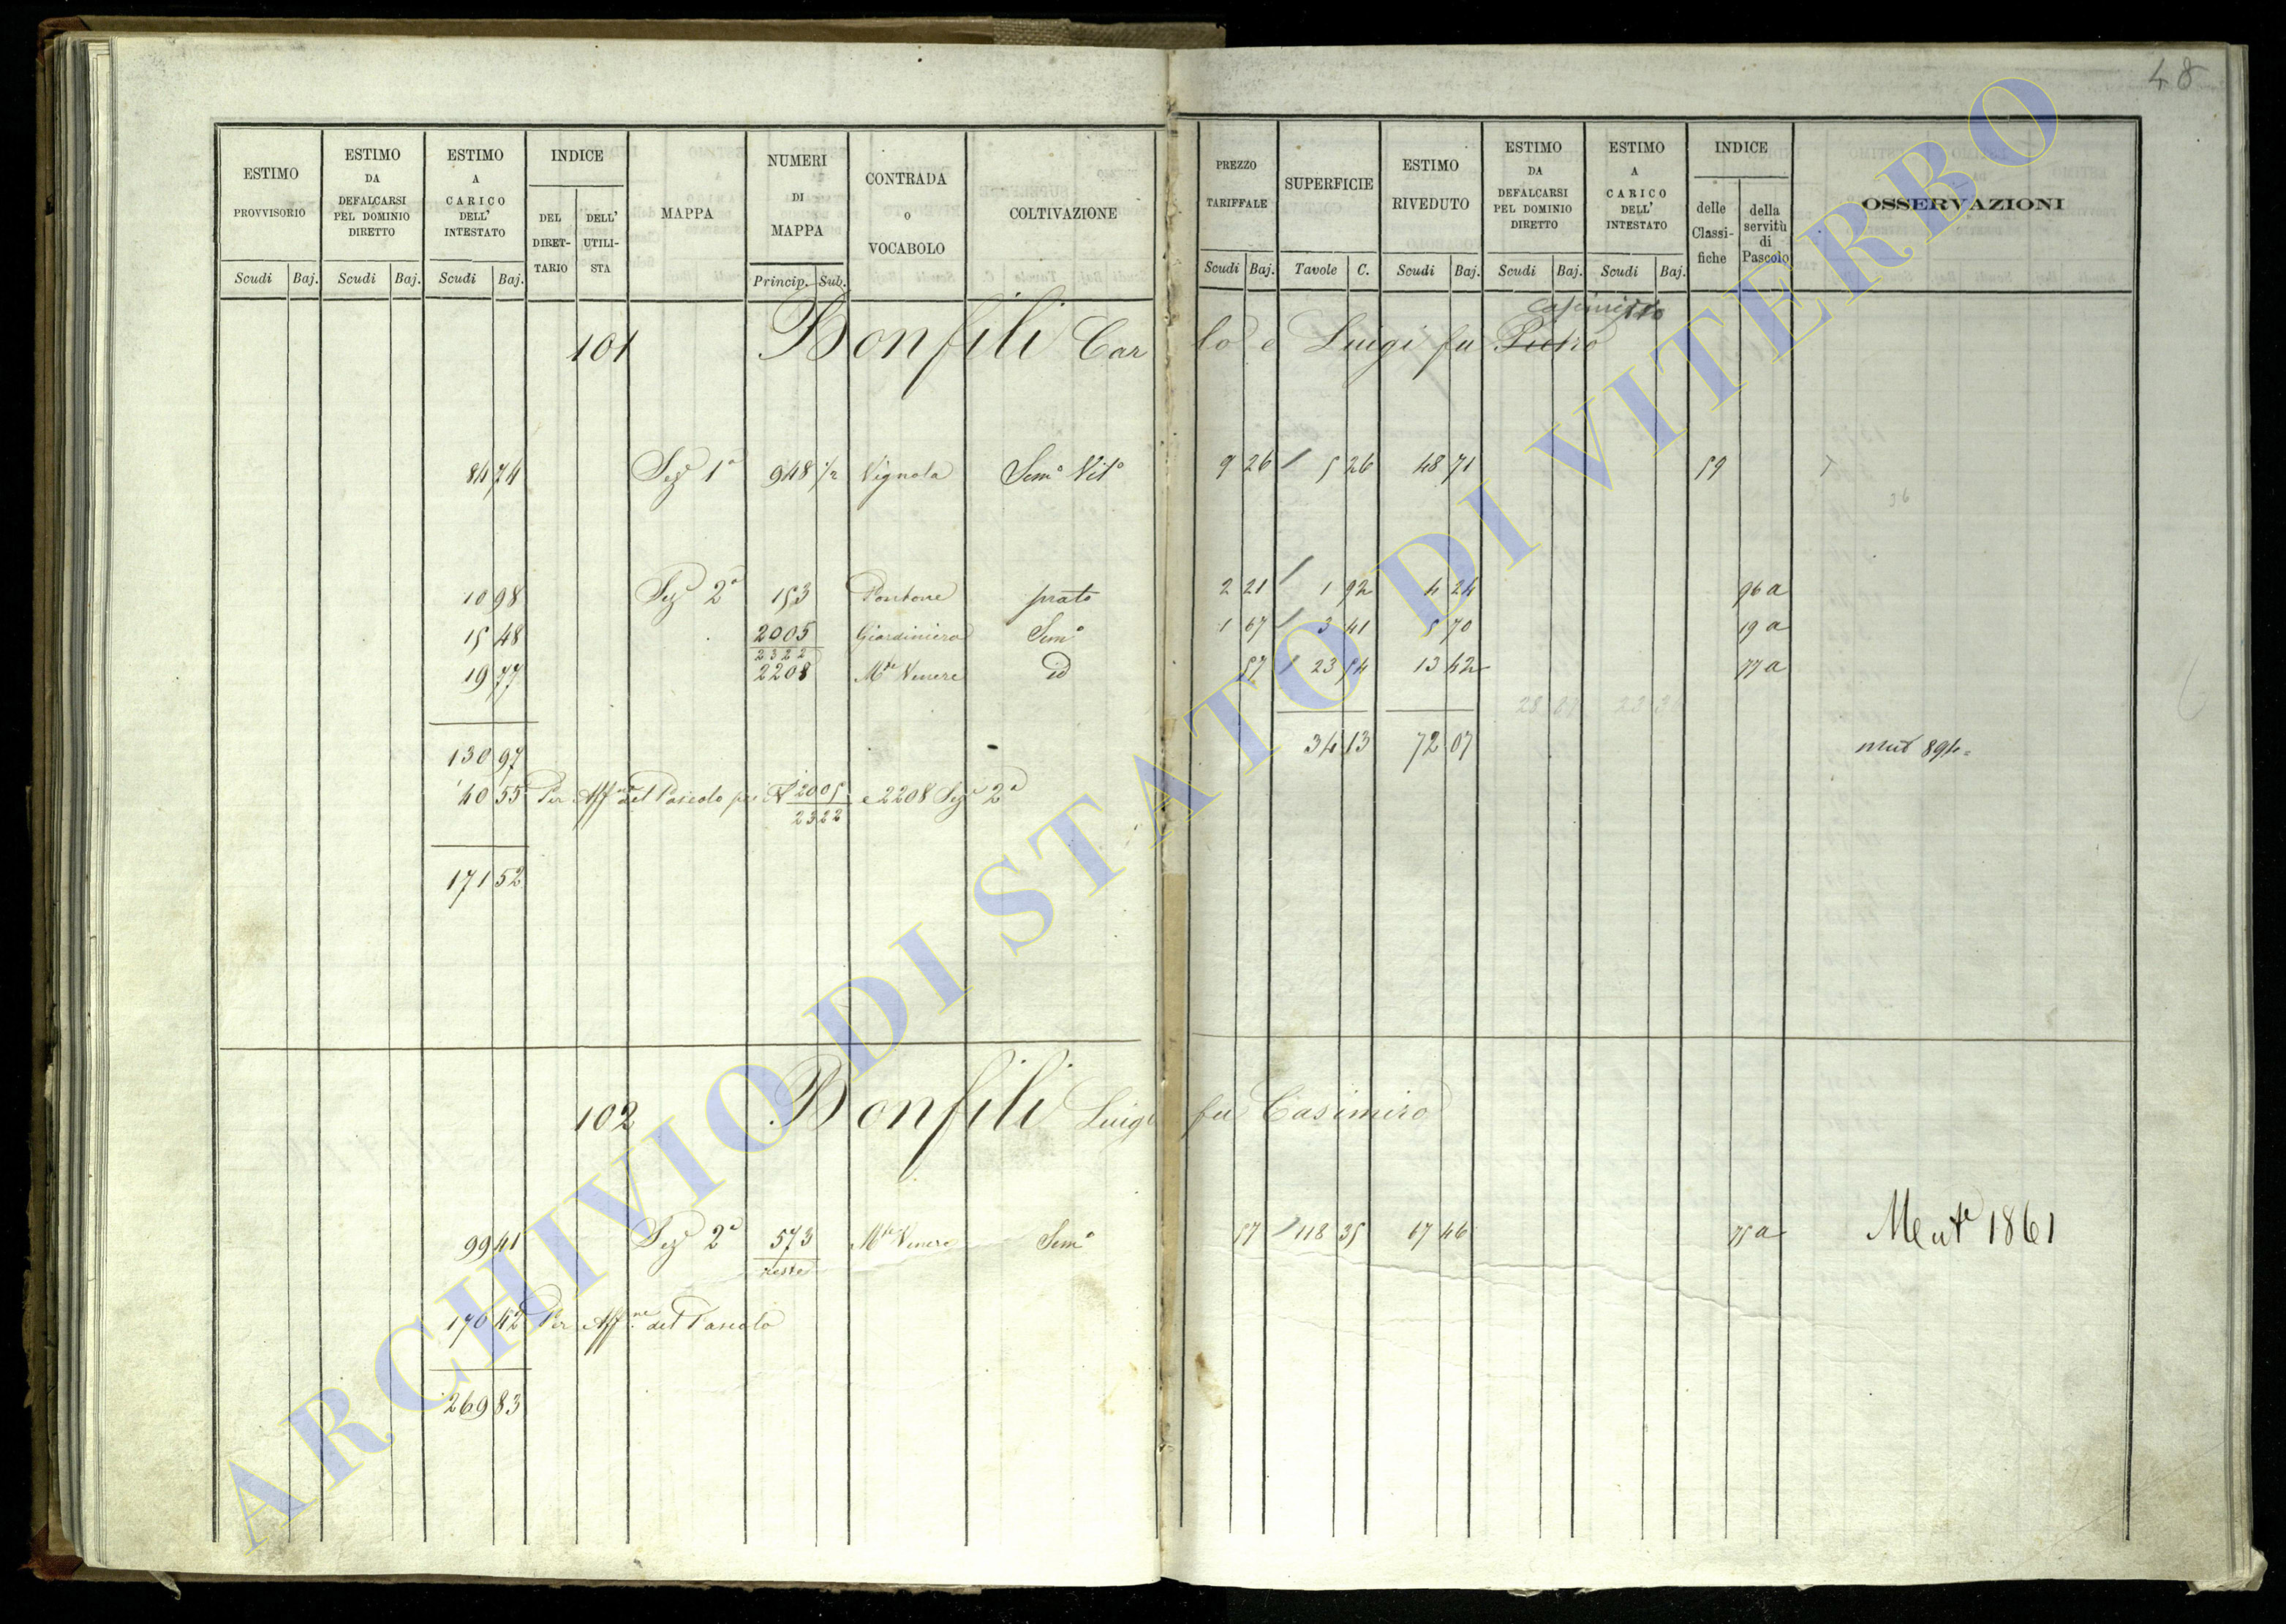 48
ESTIMO PROVVISORIO Scudi Baj. ESTIMO DA DEFALCARSI PEL DOMINIO DIRETTO Scudi Baj. ESTIMO A CARICO DELL' INTESTATO Scudi Baj. INDICE DEL DIRET-TARIO DELL' UTILI-STA MAPPA NUMERI DI MAPPA Princip. Sub. CONTRADA O VOCABOLO COLTIVAZIONE PREZZO TARIFFALE Scudi Baj. SUPERFICIE Tavole C. ESTIMO RIVEDUTO Scudi Baj. ESTIMO DA DEFALCARSI PEL DOMINIO DIRETTO Scudi Baj. ESTIMO A CARICO DELL' INTESTATO Scudi Baj. INDICE delle Classi-fiche della servitù di Pascolo OSSERVAZIONI
Casimirro
101 Bonfili Carlo e Luigi fu Pietro
84 74 Sez 1ª 948 1/2 Vignola Sem° Vit° 9 26 / 5 26 48 71 59
36
10 98 Sez 2ª 153 Pontone prato 2 21 / 1 92 4 24 96 a
15 48 2005 Giardiniera Sem° 1 67 / 3 41 5 70 19 a
2322
19 77 2208 Mte Venere id 57 / 23 54 13 42 77 a
130 97 34 13 72 07 mut 894
40 55 Per Affne del Pascolo pei N 2005 e 2208 Sez 2ª
2322
171 52
102 Bonfili Luigi fu Casimiro
99 41 Sez 2ª 573 Mte Venere Sem° 57 / 118 35 67 46 75 a Mut° 1861
resto
170 42 Per Affne del Pascolo
269 83
ARCHIVIO DI STATO DI VITERBO